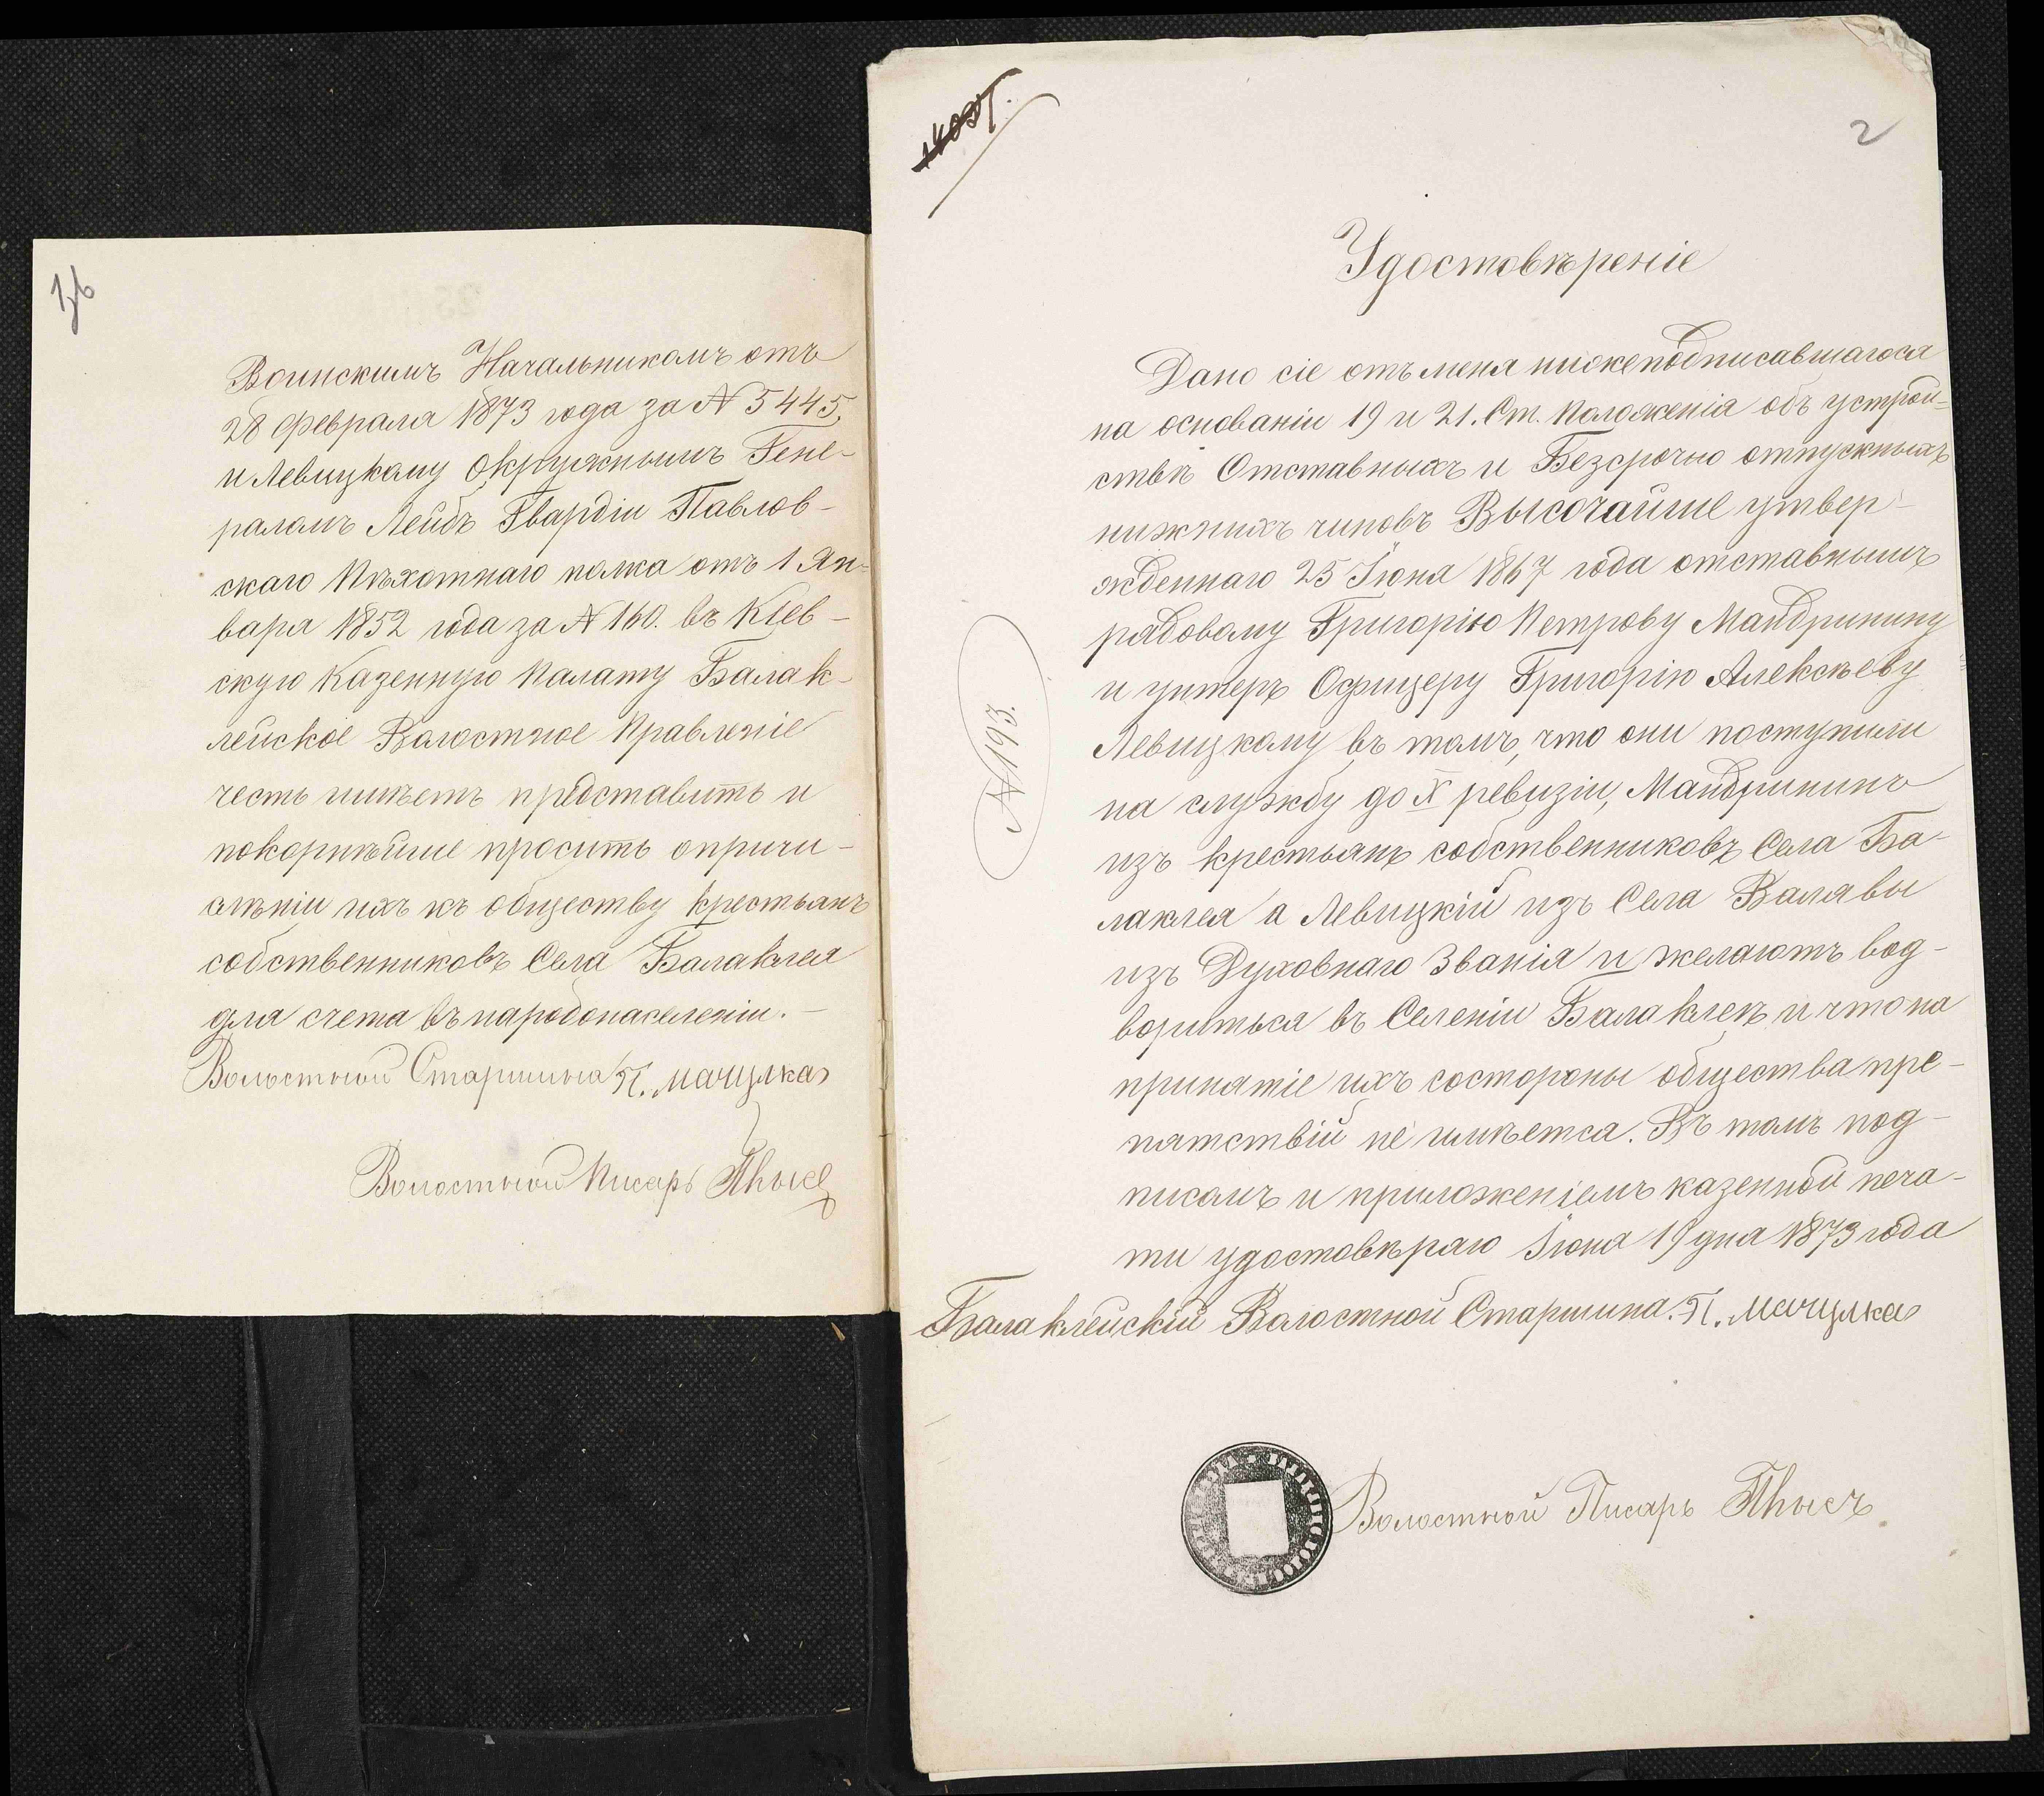 Воинскимъ Начальникомъ отъ
28 февраля 1873 года за № 5445.
и Левицкому Окружнымъ Гене-
раломъ Лейбъ Гвардіи Павлов-
скаго Пѣхотнаго полка отъ 1 Ян-
варя 1852 года за № 160. въ Кіев-
скую Казенную Палату Балак-
лейское Волостное Правленіе
честь имѣетъ представить и
покорнѣйше просить опричи-
сленіи ихъ къ обществу крестьянъ
собственниковъ Села Балаклея
для счета въ народонаселеніи. -
Волостной Старшина П. Мачулка
Волостной Писарь
2
Удостовѣреніе
Дано сіе отъ меня нижеподписавшагося
на основаніи 19 и 21. Ст. Положенія объ устрой-
ствѣ Отставныхъ и Безсрочно отпускныхъ
нижнихъ чиновъ Высочайше утвер-
жденнаго 25 Іюня 1867 года отставнымъ
рядовому Григорію Петрову Мандрикину
и унтеръ Офицеру Григорію Алексѣеву
Левицкому въ томъ, что они поступили
на службу до X ревизіи, Мандрикинъ
изъ крестьянъ собственниковъ Села Ба-
лаклея а Левицкій изъ Села Валявы
изъ Духовнаго Званія и желаютъ вод-
вориться въ Селеніи Балаклеѣ и что на
принятіе ихъ состороны общества пре-
пятствій не имѣетса. Въ томъ под-
писомъ и приложеніемъ казенной печа-
ти удостовѣряю Іюня 19 дня 1873 года
Балаклейскій Волостной Старшина. П. Мачулка
№ 193.
Волостной Писарь